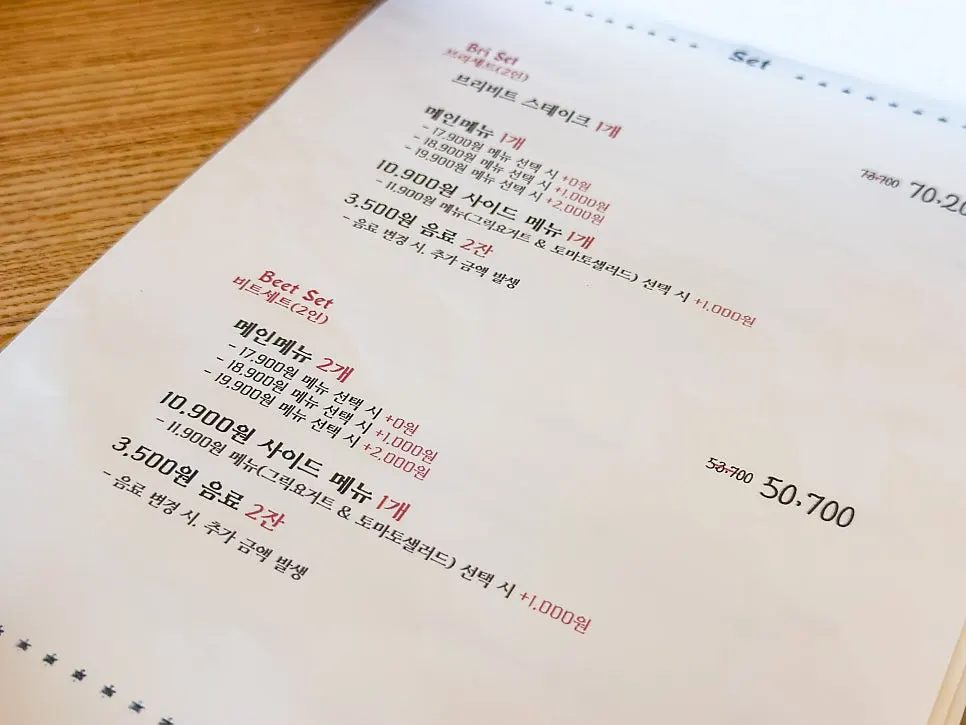 Set
Bri Set
브리세트(2인)
브리비트 스테이크 1개
메인메뉴 1개
- 17,900원 메뉴 선택 시 +0원
- 18,900원 메뉴 선택 시 +1,000원
- 19,900원 메뉴 선택 시 +2,000원
10,900원 사이드 메뉴 1개
- 11,900원 메뉴(그릭요거트 & 토마토샐러드) 선택 시 +1,000원
3,500원 음료 2잔
- 음료 변경 시, 추가 금액 발생
70,20
Beet Set
비트세트(2인)
메인메뉴 2개
- 17,900원 메뉴 선택 시 +0원
- 18,900원 메뉴 선택 시 +1,000원
- 19,900원 메뉴 선택 시 +2,000원
10,900원 사이드 메뉴 1개
- 11,900원 메뉴(그릭요거트 & 토마토샐러드) 선택 시 +1,000원
3,500원 음료 2잔
- 음료 변경 시, 추가 금액 발생
53,700 50,700